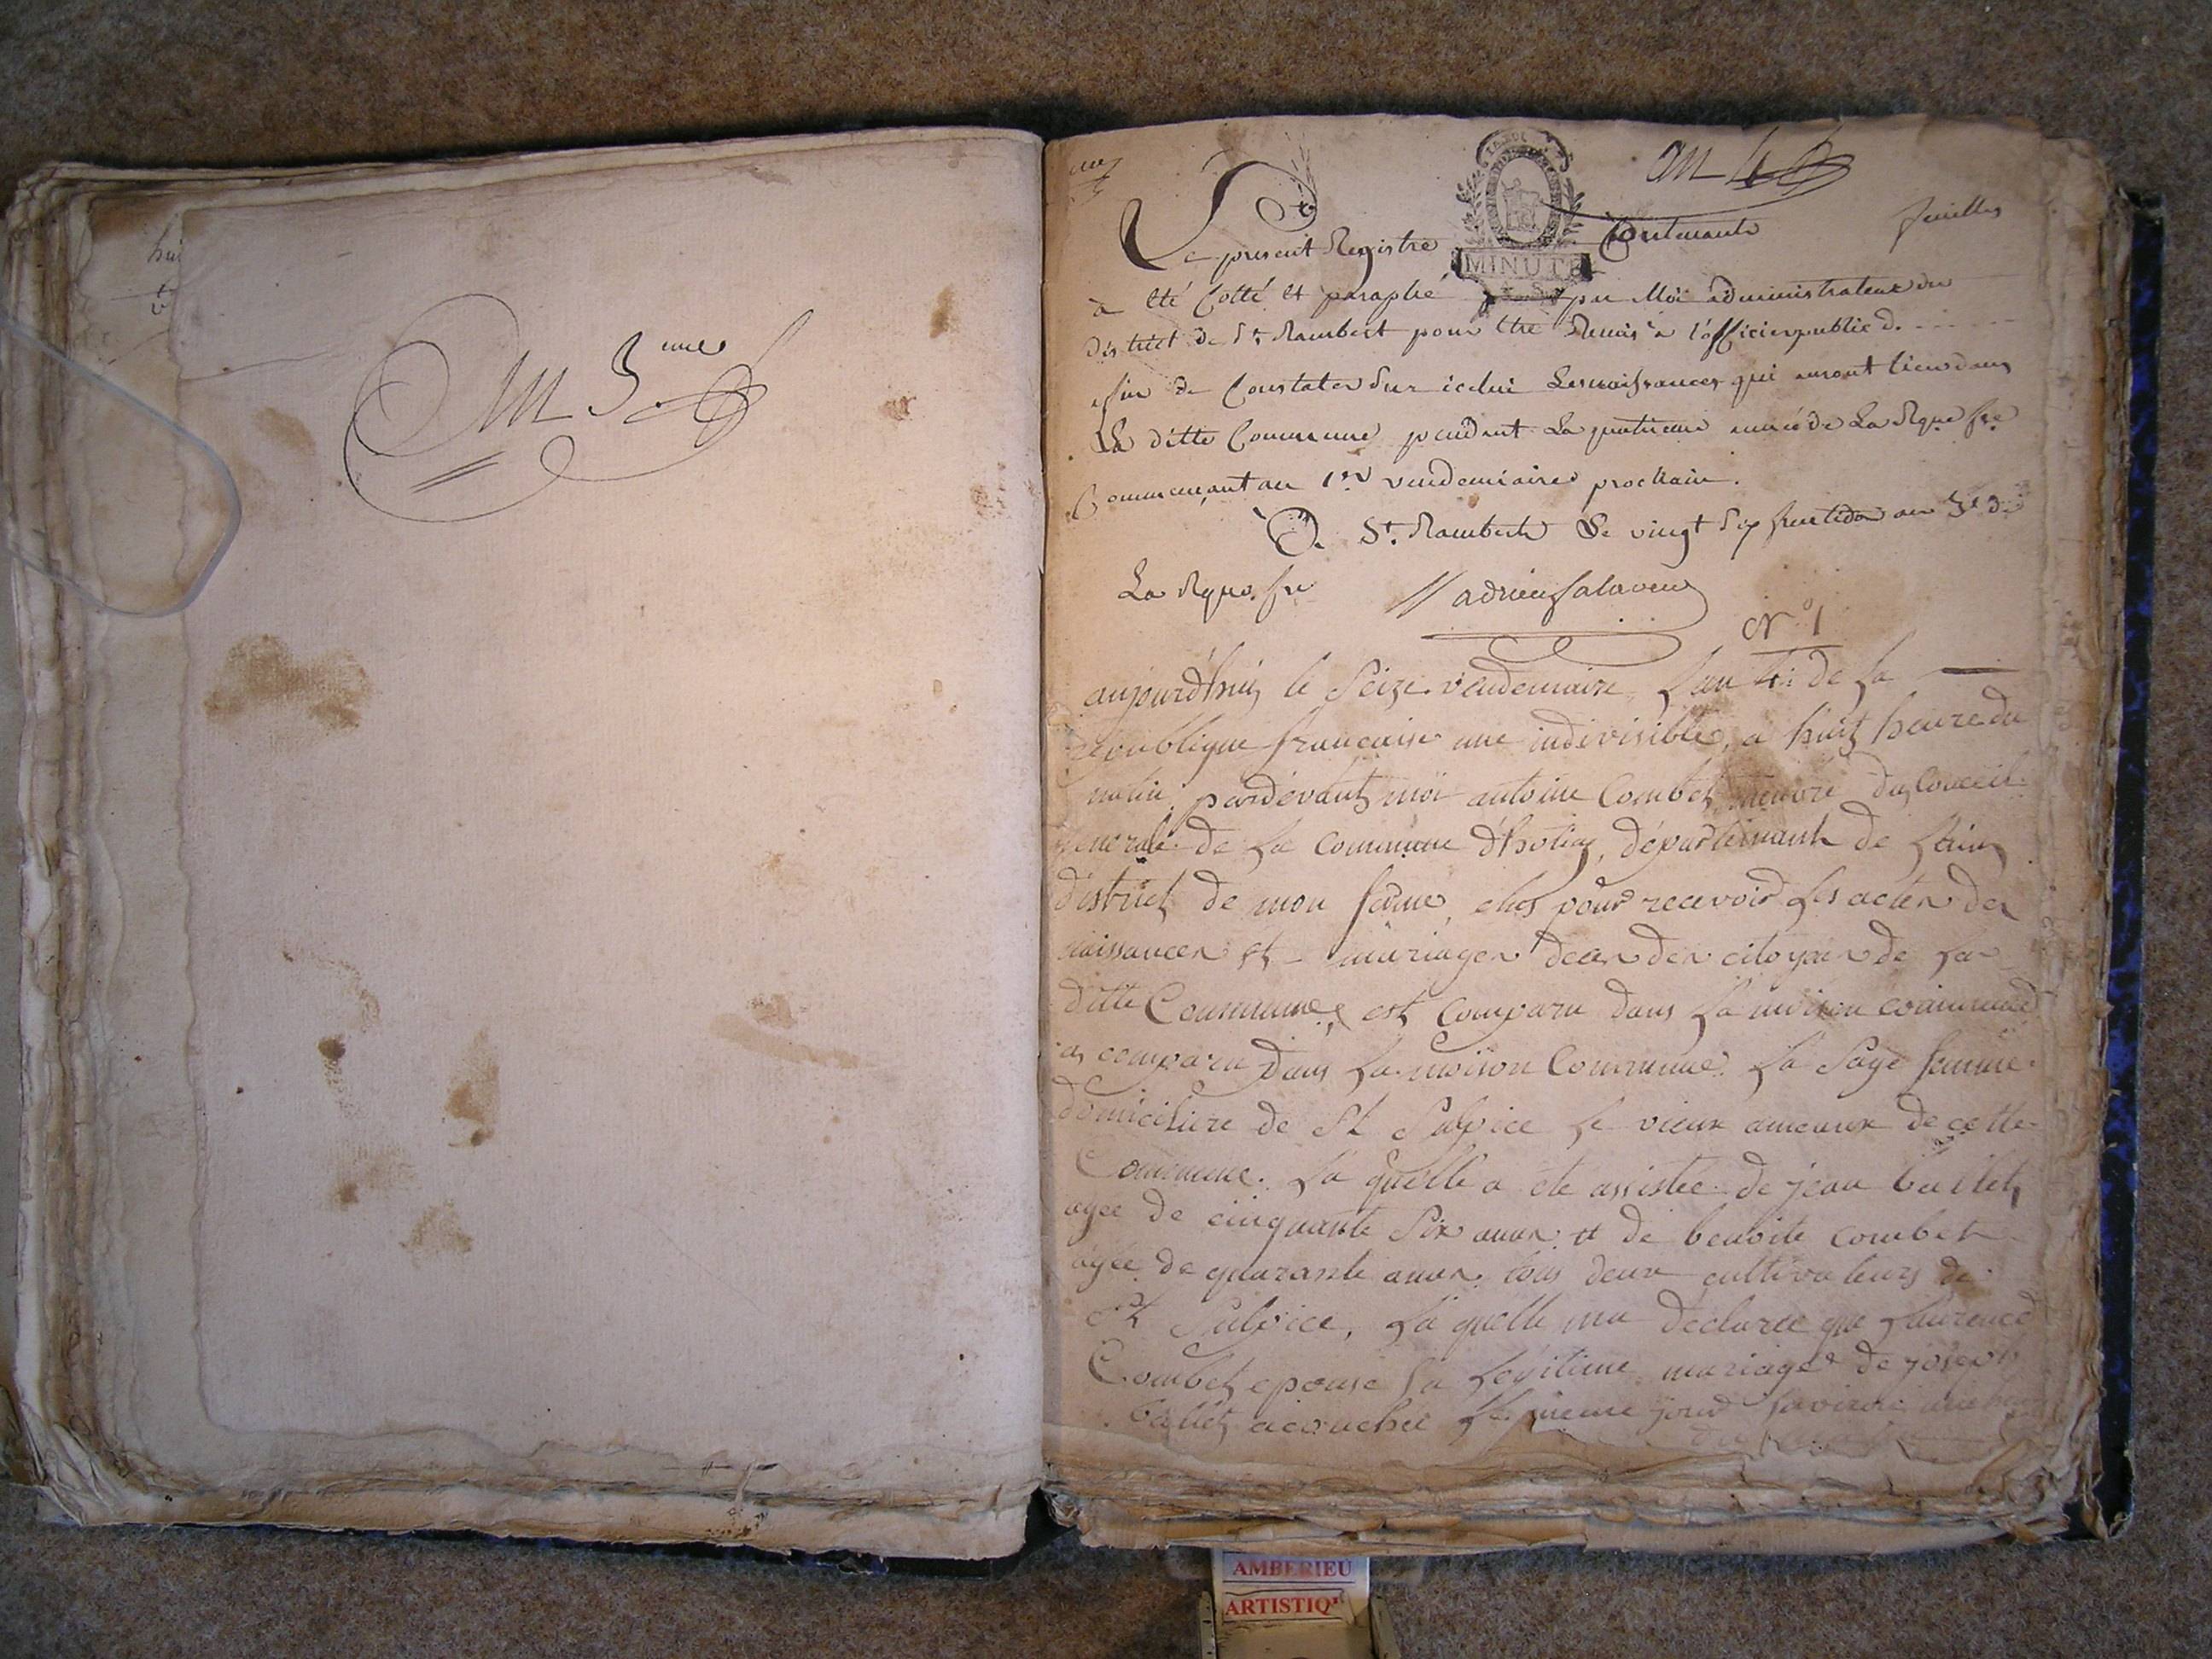 An 3.eme
an 4
MINUTE
Le present Registre Contenant feuilles
à été Cotté et paraphé par Moi administrateur du
district de St Rambert pour être Remis à l'officier public d.
afin de Constater Sur icelui Les naissances qui auront lieu dans
La ditte Commune pendant La quatrieme année de La Rque fse
Commençant au 1er vendemiaire prochain.
A St. Rambert Le vingt Six fructidor an 3e de
La Rque. fse
N° 1
aujourd'huy le Seize vendemiaire Lan 4 de La
republique francaise une indivisible, a huit heure du
matin pardevant moi antoine Combet membre du Conceil
generale de La commune d'hotiaz, département de Lain
district de mon ferme, elus pour recevoir Les actes des
naissances et mariages deces des citoyen de La
ditte Commune, est Comparu dans La moison commune
a comparu Dans La moison Commune La Sage femme
domiciliere de St Sulpice Le vieux ameaux de cette
Commune. La quelle a ete assistee de jean ballet
agee de cinquante Six anes et de benoite combet
agée de quarante anes tous deux cultivateurs de
St Sulpice, La quelle ma declaree que Laurence
Combet epouse La Legitime mariage de joseph
ballet acouchee Le meme jour
AMBERIEU
ARTISTIQ